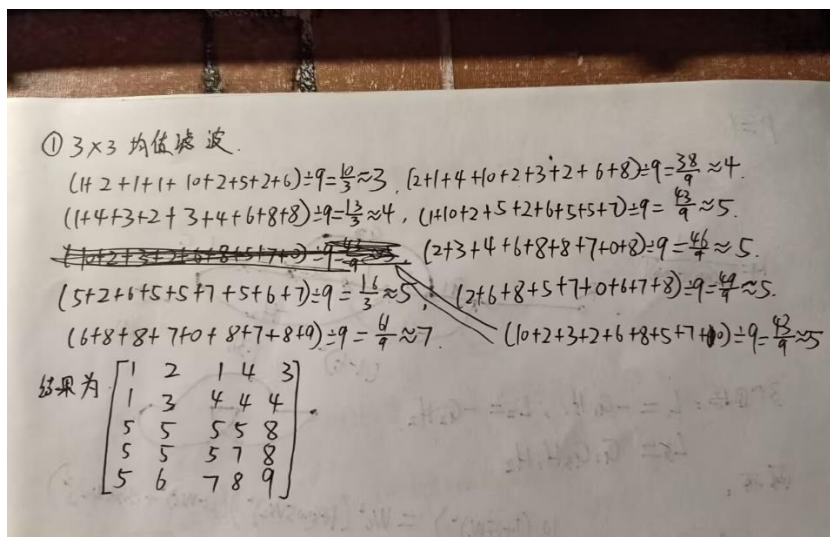 ① 3×3 均值滤波.
(1+2+1+1+10+2+5+2+6)÷9=10/3≈3, (2+1+4+10+2+3+2+6+8)÷9=38/9≈4.
(1+4+3+2+3+4+6+8+8)÷9=13/3≈4, (1+10+2+5+2+6+5+5+7)÷9=43/9≈5.
(2+3+4+6+8+8+7+0+8)÷9=46/9≈5.
(5+2+6+5+5+7+5+6+7)÷9=16/3≈5; (2+6+8+5+7+0+6+7+8)÷9=49/9≈5.
(6+8+8+7+0+8+7+8+9)÷9=61/9≈7 (10+2+3+2+6+8+5+7+0)÷9=43/9≈5
结果为
1 2 1 4 3
1 3 4 4 4
5 5 5 5 8
5 5 5 7 8
5 6 7 8 9